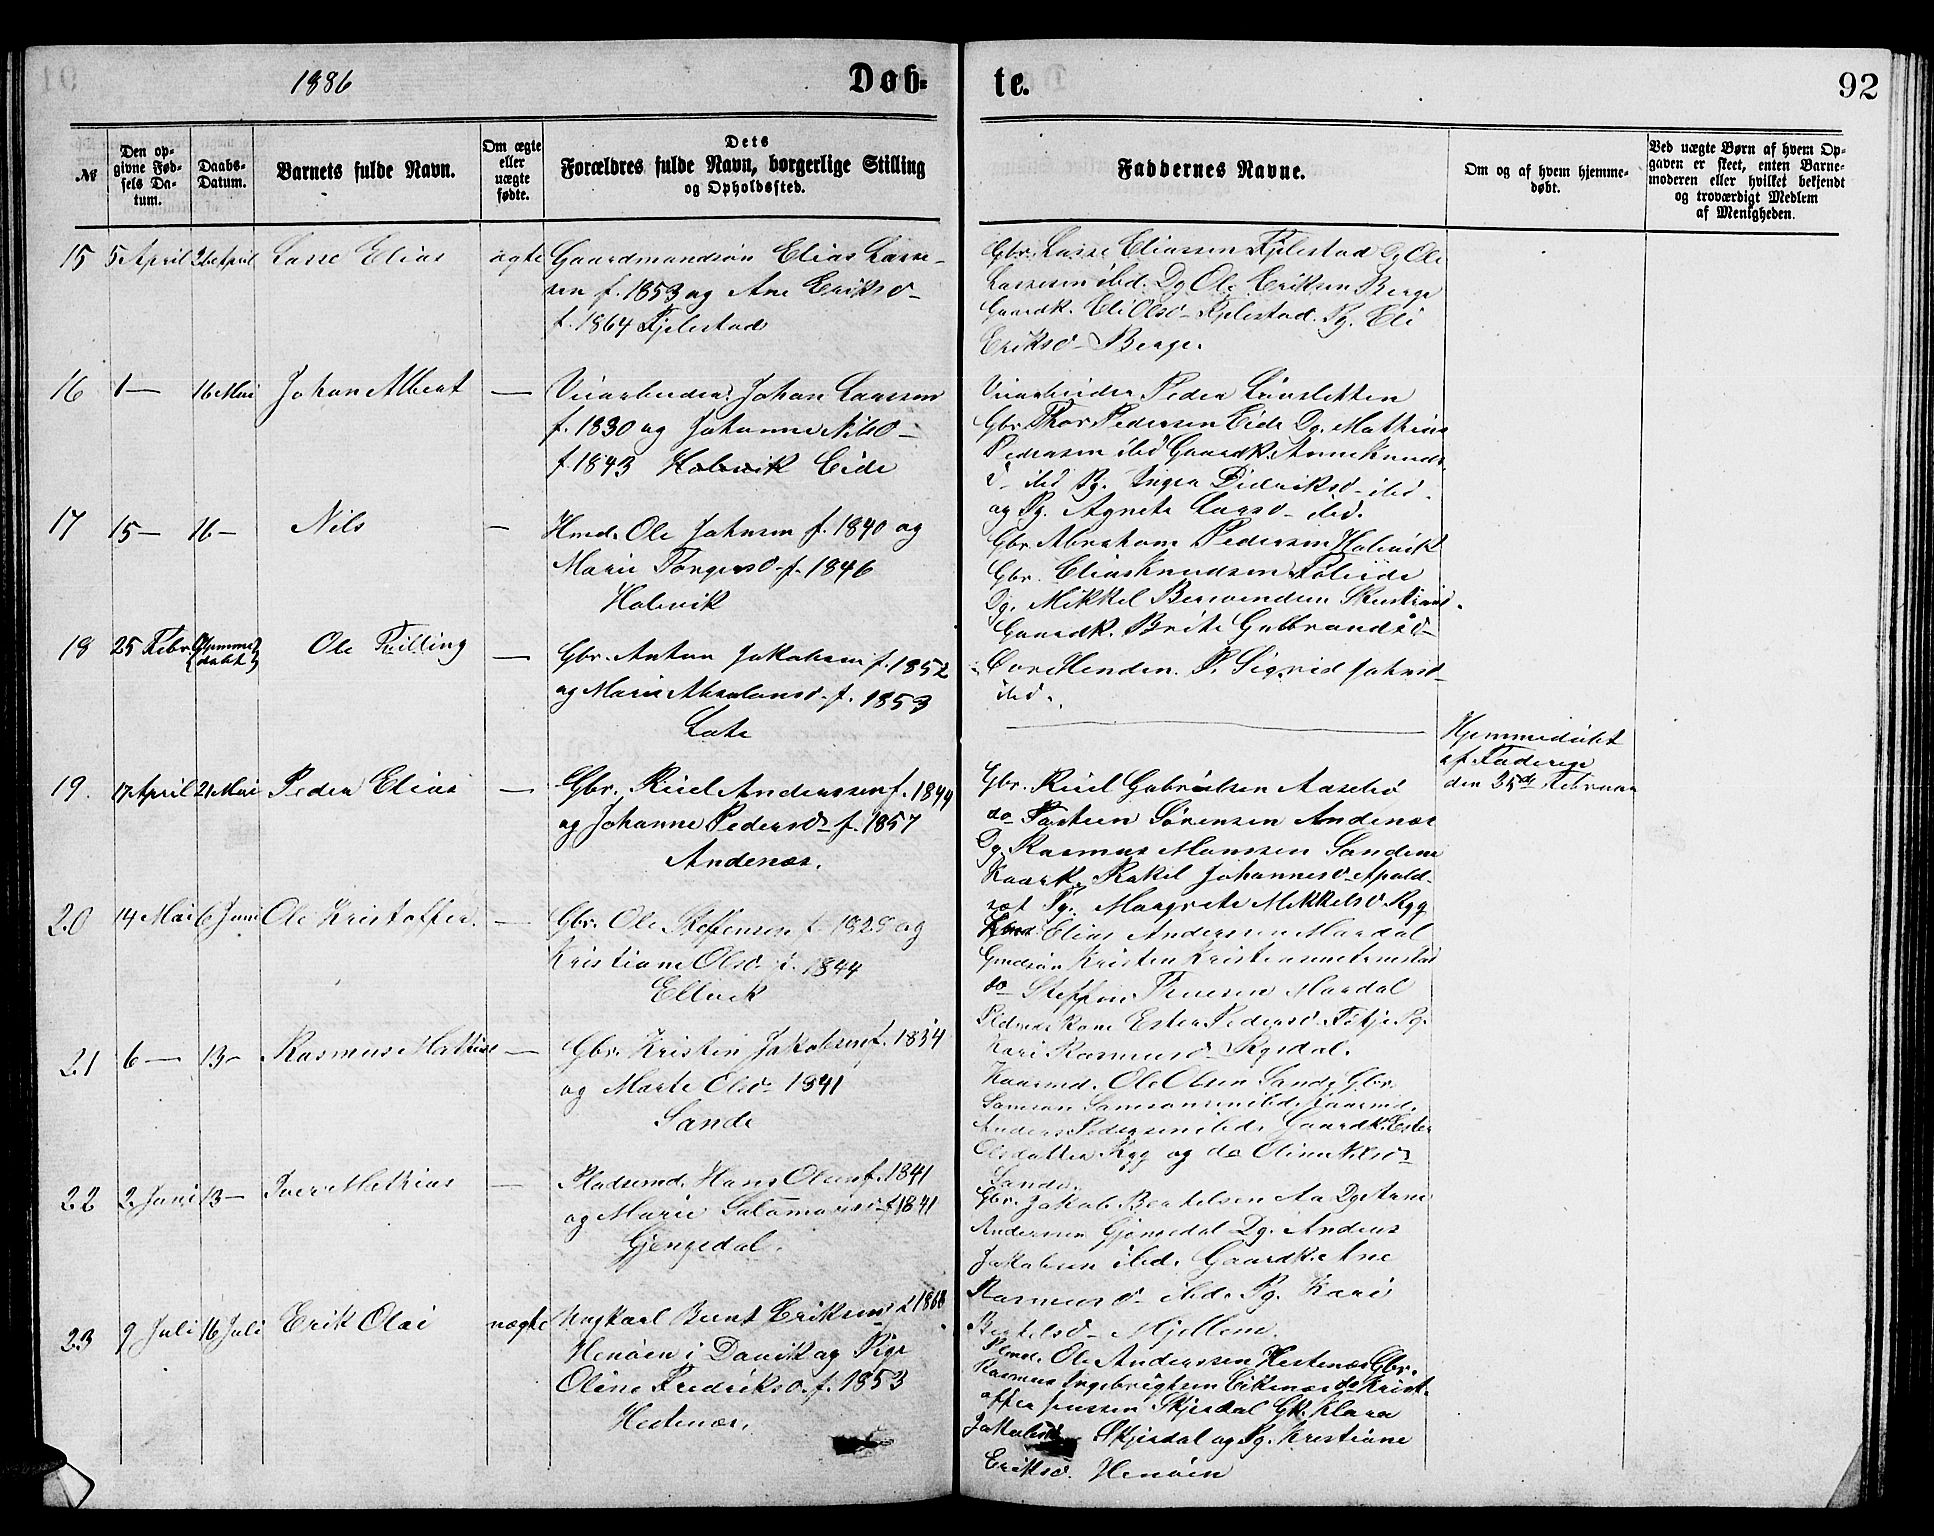 1886 Døb-
te. 92
№
Den op-
givne Fød-
sels Da-
tum.
Daabs-
Datum.
Barnets fulde Navn.
Om ægte
eller
uægte
fødte.
Dets
Forældres fulde Navn, borgerlige Stilling
og Opholdssted.
Faddernes Navne.
Om og af hvem hjemme-
døbt.
Ved uægte Børn af hvem Op-
gaven er skeet, enten Barne-
moderen eller hvilket bekjendt
og troværdigt Medlem
af Menigheden.
15 5 April 26 April Lasse Elias ægte Gaardmandsøn Elias Lasse-
sen f. 1853 og Ane Eriksd-
f. 1864 Fjelestad
Gbr. Lasse Eliassen Fjelestad Dg Ole
Lassesen ibd. Dg Ole Eriksen Berge
Gaardk. Eli Olsd- Fjelestad. Pg. Eli
Eriksd- Berge.
16 1— 16 Mai Johan Albert — Veiarbeider Johan Larssen
f. 1830 og Johanne Nilsd-
f. 1843 Holevik Eide
Veiarbeider Peder
Gbr. Thor Pedersen Eide Dg. Mathias
Pedersen ibd Gaardk. Anne Knuds
d- ibd Pg. Inger Didriksd- ibd.
og Pg. Agnete Larsd- ibd.
17 15— 16— Nils — Hmd. Ole Johnsen f. 1840 og
Marie Torgersd- f. 1846
Holevik
Gbr. Abraham Pedersen Holevik
Gbr. Elias Knudsen
Dg. Mikkel
Gaardk. Brite Gulbrandsd-
Henden. P. Sigrid Johnsd-
ibd.
18 25 Febr. Hjemme
døbt Ole Filling — Gbr. Anton Jakobsen f. 1852
og Marie Absalonsd- f. 1853
Lote
Hjemmedøbt
af Faderen
den 25de Februar
19. 17 April 21 Mai Peder Elias — Gbr. Andersen f. 1844
og Johanne Pedersd- f. 1857
Andenæs.
Gbr. Gabrielsen Aasebø
do Sørensen Andenæs
Dg. Rasmus Monssen Sandene
Kaark. Rakel Johannesd- Apald-
sæt Pg. Margrete Mikkelsd- Ryg
20 14 Mai 6 Juni Ole Kristoffer. — Gbr. Ole Steffensen f. og
Kristiane Olsd- f. 1844
Elvik
Elias Andersen Mardal
Gmdsøn Kristen
do Steffen Mardal
Kone Ester Pedersd- Pg.
Kari Rasmusd-
21 6— 13— Rasmus Mathias — Gbr. Kristen Jakobsen f. 1834
og Marte Olsd- 1841
Sande
Kaarmd. Ole Olsen Sande Gbr.
Samson Samsonsen ibd. Kaarmd.
Anders Pedersen ibd. Gaardk. Ester
Olsdatter Ryg og do Oline Nilsd-
Sande.
22 2 Juni 13— Iver Mathias — Pladsmd. Hans Olsen f. 1841
og Marie Salamonsd- f 1841
Gjengedal.
Gbr. Jakob Bertelsen Aa Dg Arne
Andersen Gjengedal Dg. Anders
Jakobsen ibd. Gaardk. Ane
Rasmusd- ibd. Pg. Kari
Bertelsd- Mjellem.
23 9 Juli 16 Juli Erik Olai uægte Ungkarl Bernt Eriksen f 1868
Henøen i Davik og Pige
Oline Fredriksd. f. 1853
Hestenæs.
Plmd. Ole Anderssen Hestenæs Gbr.
Rasmus Ingebrigtsen Eikenæs do Krist-
offer Jenssen Skjerdal Gk. Klara
Jakobsd Skjerdal og Pg. Kristiane
Eriksd. Henøen